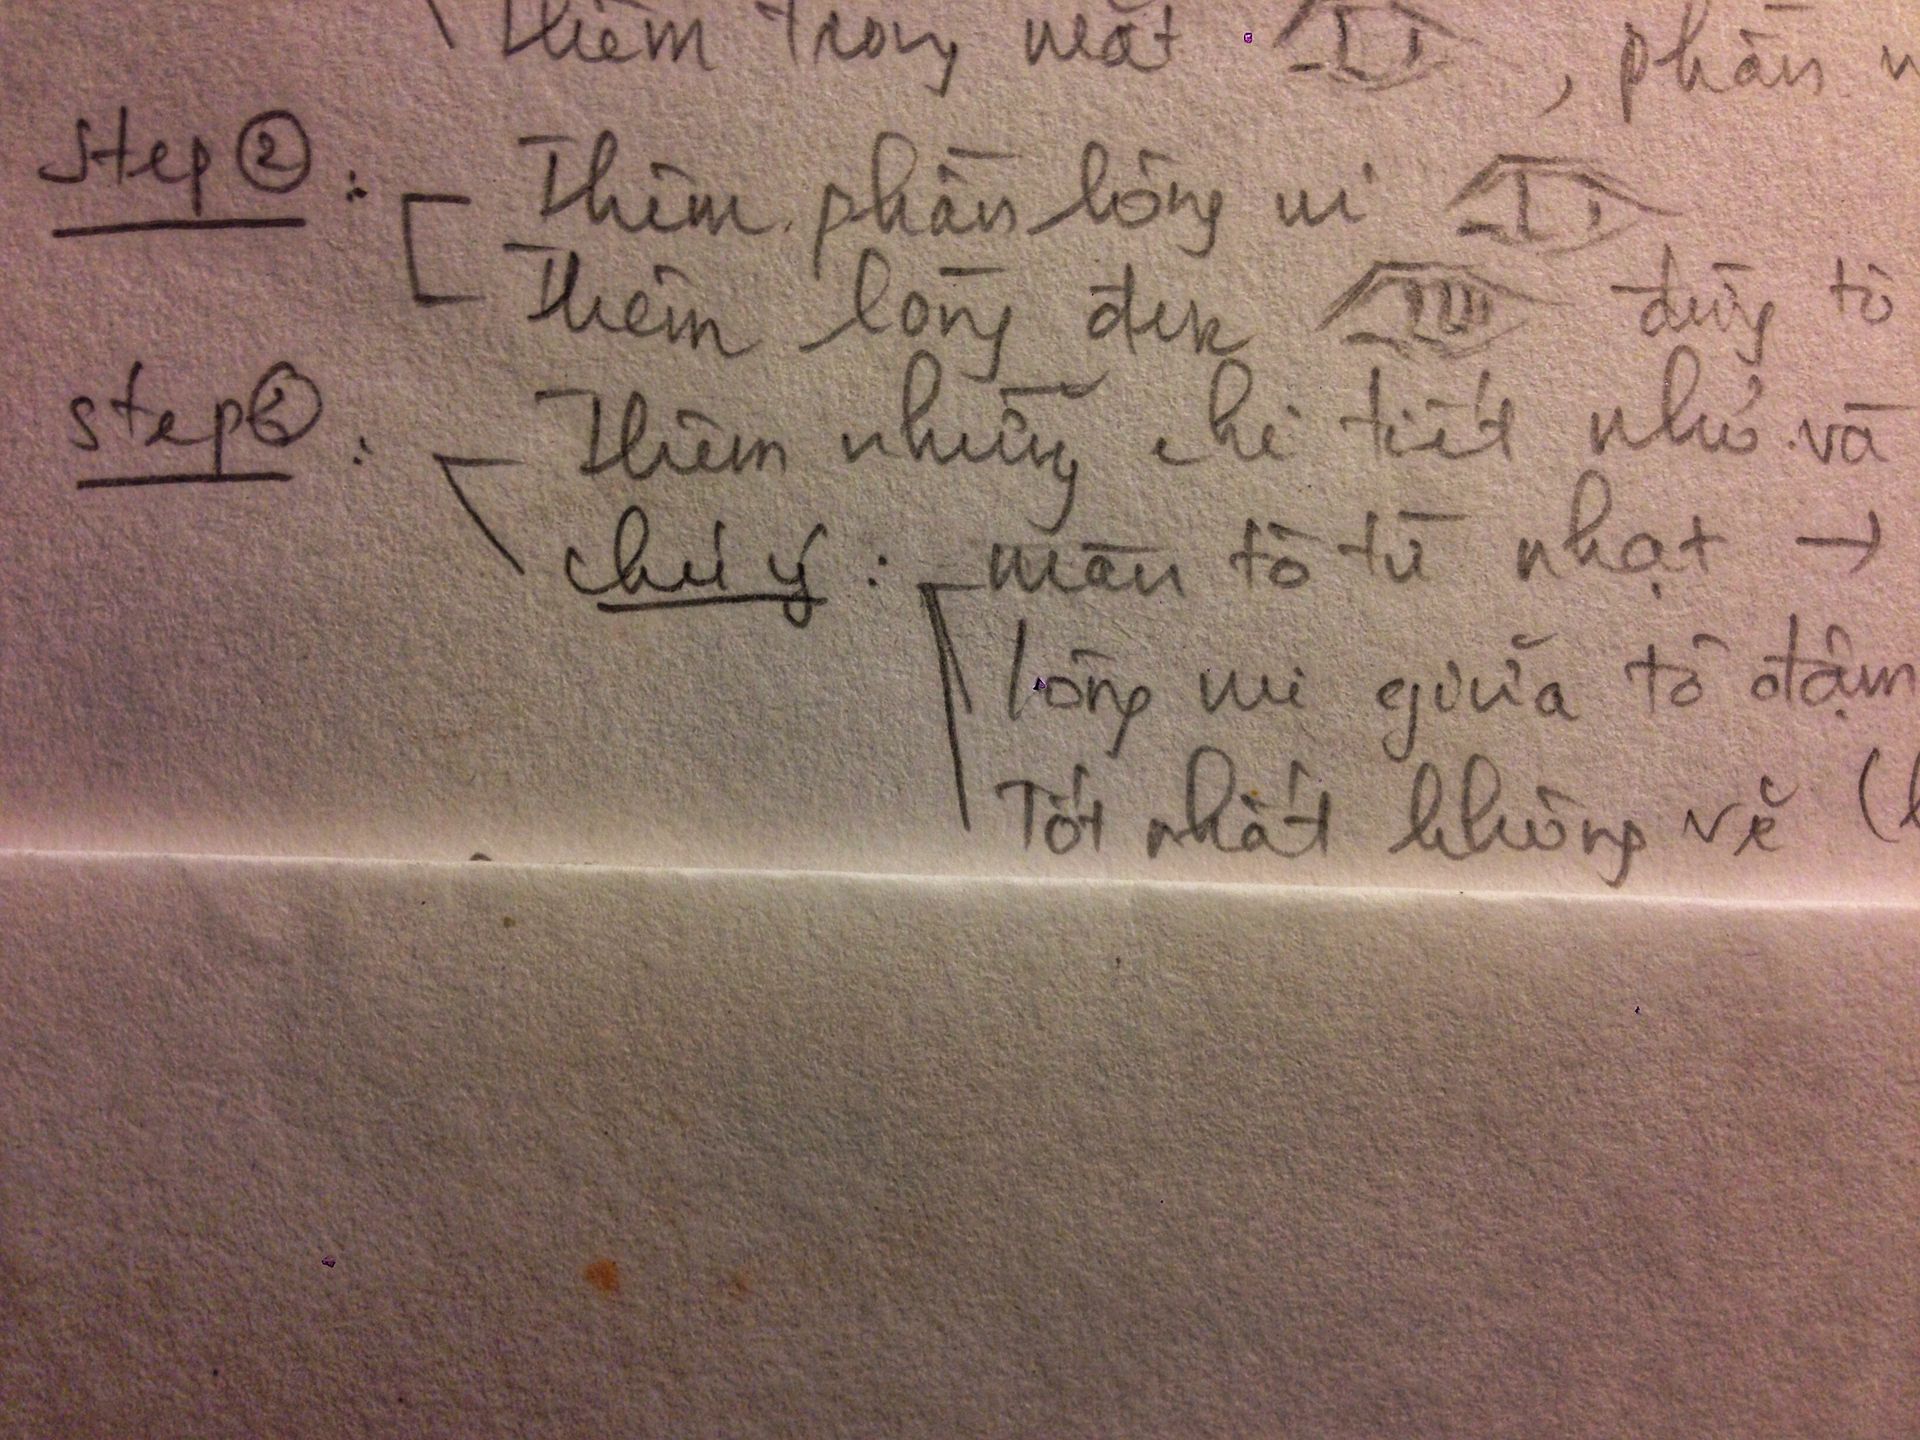 Thêm trong mắt , phần
step ② : Thêm phần lông mi
Thêm lòng đen đừng tô
step ③ : Thêm những chi tiết nhỏ và
chú ý : màu tô từ nhạt →
lông mi giữa tô đậm
Tốt nhất không vẽ (